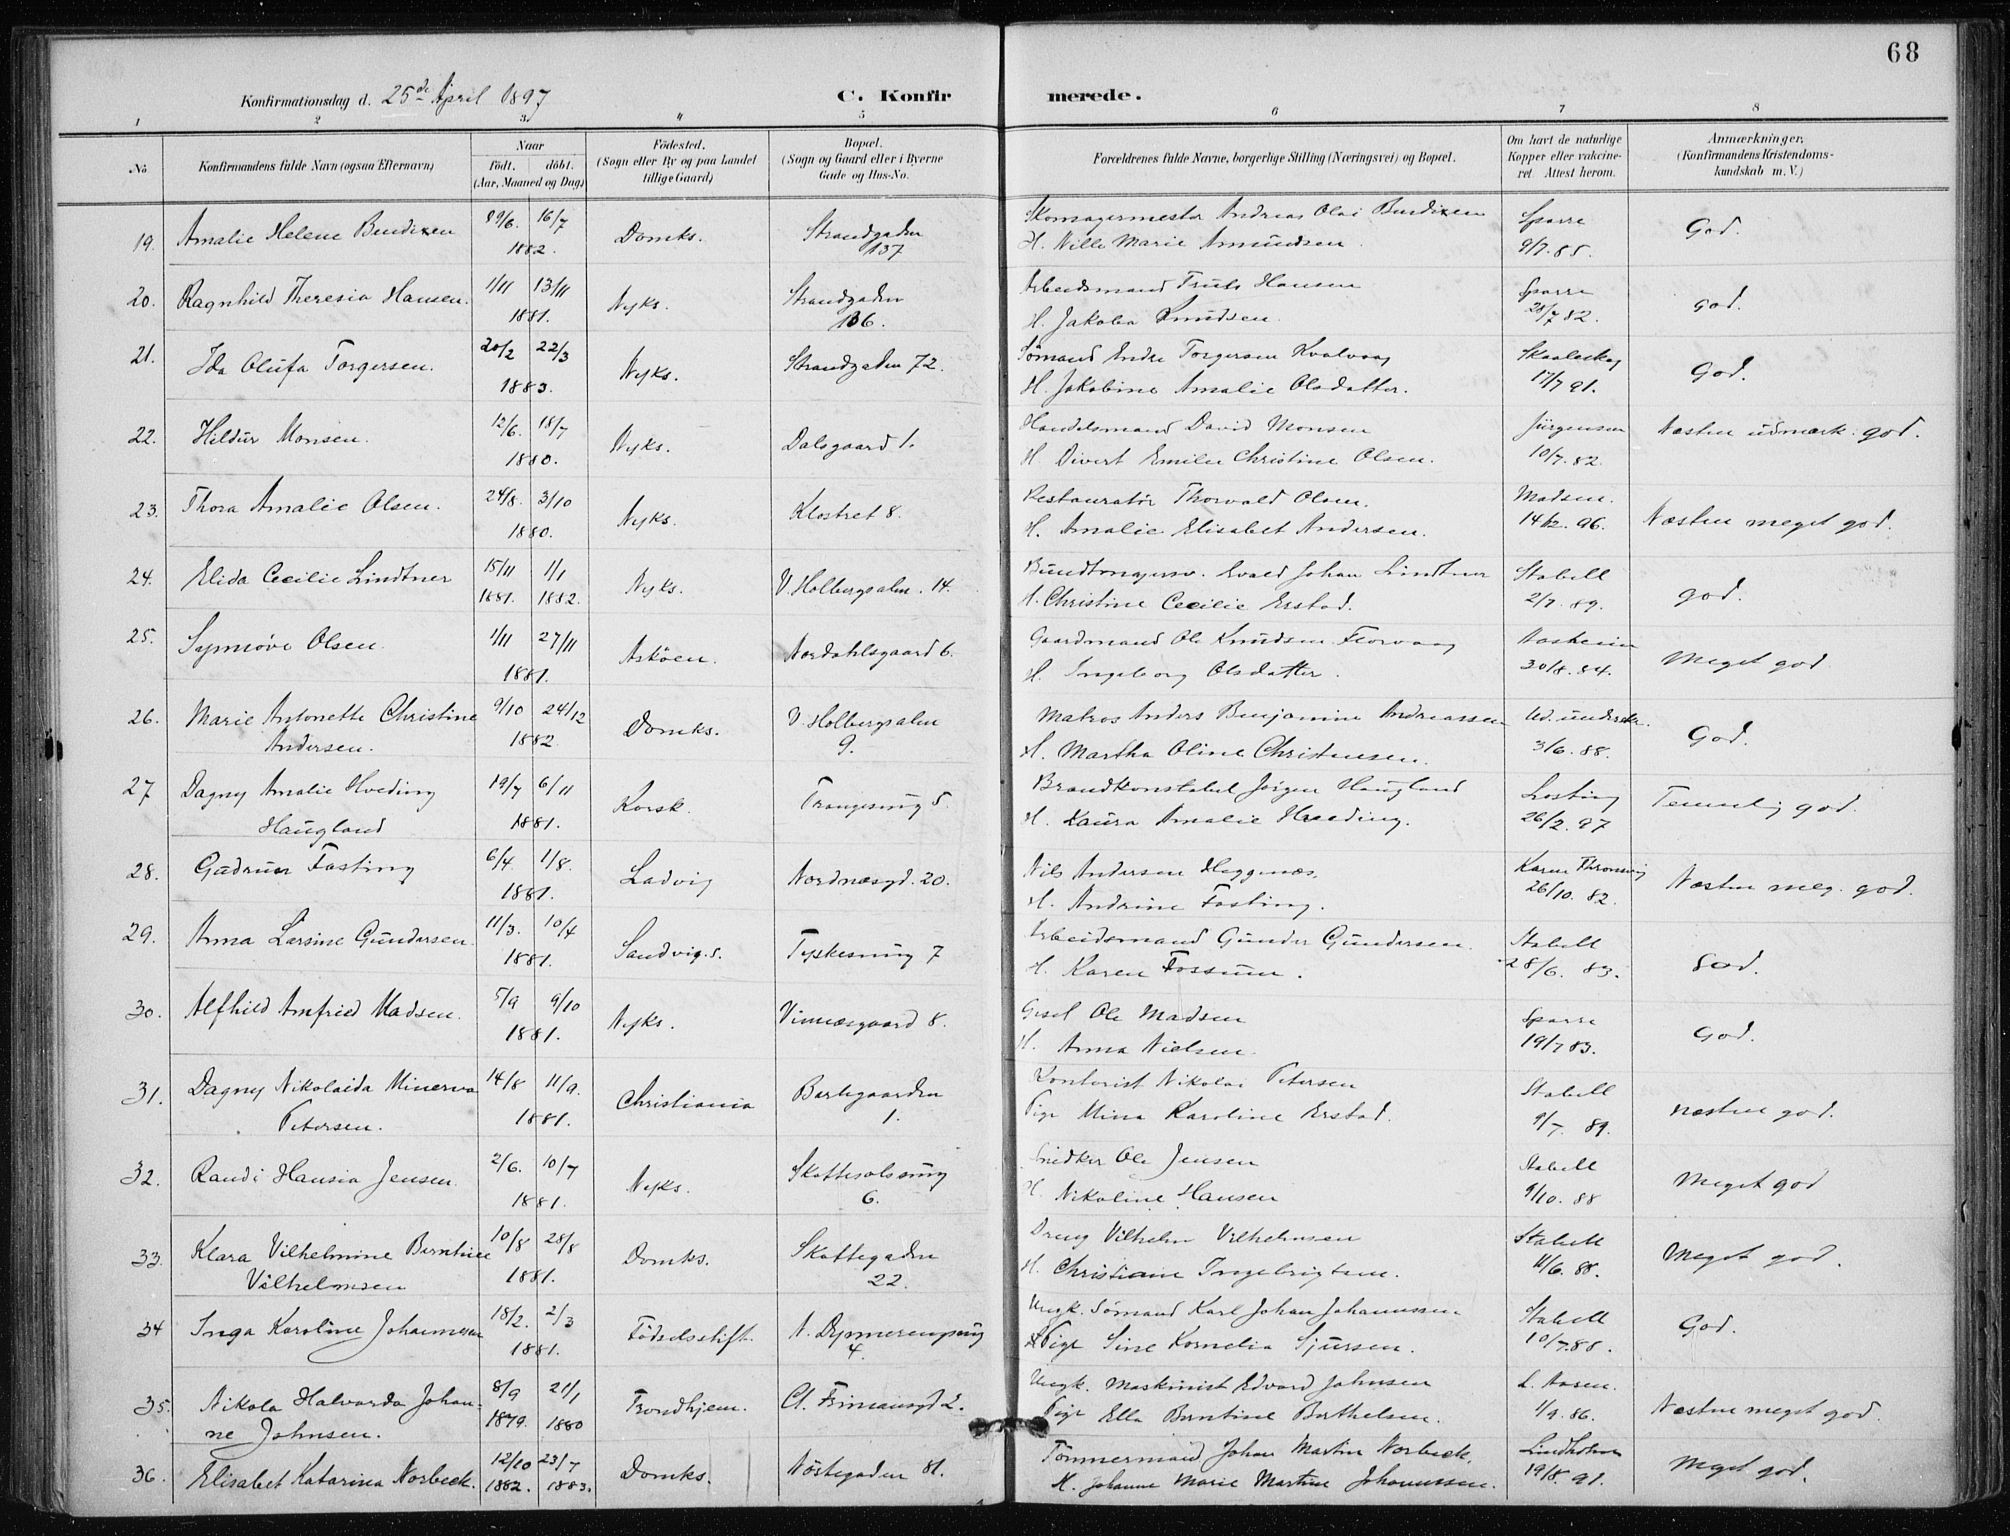 68
Konfirmationsdag d. 25de April 1897
C. Konfir
merede.
1 2 3. 4 5 6 7 8
No
Konfirmandens fulde Navn (ogsaa Efternavn)
Naar
født. døbt.
(Aar, Maaned og Dag)
Fødested.
(Sogn eller By og paa Landet
tillige Gaard)
Bopæl.
(Sogn og Gaard eller i Byerne
Gade og Hus-No.
Forældrenes fulde Navne, borgerlige Stilling (Næringsvei) og Bopæl.
Om havt de naturlige
Kopper eller vakcine-
ret. Attest herom.
Anmærkninger,
(Konfirmandens Kristendoms-
kundskab m. V.)
19. Amalie Helene Bendixen 16/7 1882. Domks. Strandgaden 137
Skomagermester Andreas Olai Bendixen
H. Nille Marie Amundsen
Sparre 9/7.85. God.
20. Ragnhild Theresia Hansen. 1/11 13/11 1881. Nyks. Strandgaden 186.
Arbeidsmand Truls Hansen
H. Jakoba Knudsen.
Sparre 28/7 82. god.
21. Ida Olufa Torgersen. 20/2 22/3 1883. Nyks. Strandgaden 72.
Sømand Endre Torgersen Kvalvaag
H. Jakobine Amalie Olsdatter.
17/7 91. God.
22. Hildur Monsen. 12/6. 18/7 1880. Nyks. Dalsgaard 1.
Handelsmand David Monsen
H. Divert Emilie Christine Olsen.
Jürgensen 10/7.82. Næsten udmærk. god.
23. Thora Amalie Olsen. 24/8. 3/10 1880. Nyks. Klostret 8.
Restauratør Thorvald Olsen.
H. Amalie Elisabet Andersen.
Madsen. 14/2. 96. Næsten meget god.
24. Elida Cecilie Lindtner 15/11 1881. 1/1 1882. Nyks. V. Holbergsalm. 14.
Evald Johan Lindtner
H. Christine Cecilie Erstad.
Stabell 2/7. 89. god.
25. Synnøve Olsen. 1/11 27/11 1881. Askøen. Nordahlsgaard 6.
Gaardmand Ole Knudsen Florvaag
H. Ingeborg Olsdatter.
30/8. 84. Meget god
26. Marie Antonette Christine Andersen. 9/10 24/12 1882 Domks. V. Holbergsalm 9.
Matros Anders Benjamin Andreassen
H. Martha Oline Christensen.
3/6. 88. God.
27 Dagny Amalie Hveding Haugland 19/7 6/11 1881. Korsk. Trangesmug 5.
Brandkonstabel Jørgen Haugland
H. Laura Amalie Hveding.
Losting 26/2. 97 Temmelig god.
28. Gudrun Fasting 6/4 1/8. 1881. Ladvig Nordnæsgd. 20.
Nils Andersen Heggenæs.
H. Andrine Fasting.
Karen 26/10. 82. Næsten meg. god.
29. Anna Larsine Gundersen. 11/3. 10/4 1881. Sandvig.s. Tyskesmug 7
Arbeidsmand Gunder Gundersen.
H. Karen Fossum.
Stabell 28/6. 83. god.
30. Alfhild Amfried Madsen. 5/9 9/10 1881. Nyks. Vinnæsgaard 8.
Gesel Ole Madsen
H. Anna Nielsen.
Sparre 19/7 83. God.
31. Dagny Nikolaida Minerva Petersen. 14/8 11/9. 1881. Christiania Bartegaarden 1.
Kontorist Nikolai Petersen
Pige Mina Karoline Erstad.
Stabell 9/7. 89. næsten god.
32. Randi Hansia Jensen. 2/6. 10/7 1881. Nyks. Skottesalssmug 6.
Snedker Ole Jensen
H. Nikoline Hansen
Stabell 9/10. 88 Meget god
33. Klara Vilhelmine Berntine Vilhelmsen 10/8 28/8 1881. Domks. Skottegaden 22.
Dreng Vilhelm Vilhelmsen
H. Christiane Ingebrigtsen.
Stabell 11/6. 88. Meget god.
34 Inga Karoline Johannesen 18/2. 2/3 1881. Fødselsstift. 4.
Ungk. Sømand Karl Johan Johannessen.
Pige Sine Kornelia Sjursen.
Stabell 10/7.88. God.
35. Nikola Halvarda Johan-
ne Johnsen. 8/9 1879. 21/1 1880 Trondhjem. Cl. Frimansgd 2.
Ungk. Maskinist Edvard Johnsen
Pige Ella Berntine Berthelsen.
L. Aasen. 1/9. 86. Næsten meget god.
36. Elisabet Katarina Norbeck. 12/10 1882. 23/7 1883. Domks. Nøstegaden 81.
Tømmermand Johan Martin Norbeck.
H. Johanne Marie Martine Johannessen.
Lindholm 19/8 91. Meget god.